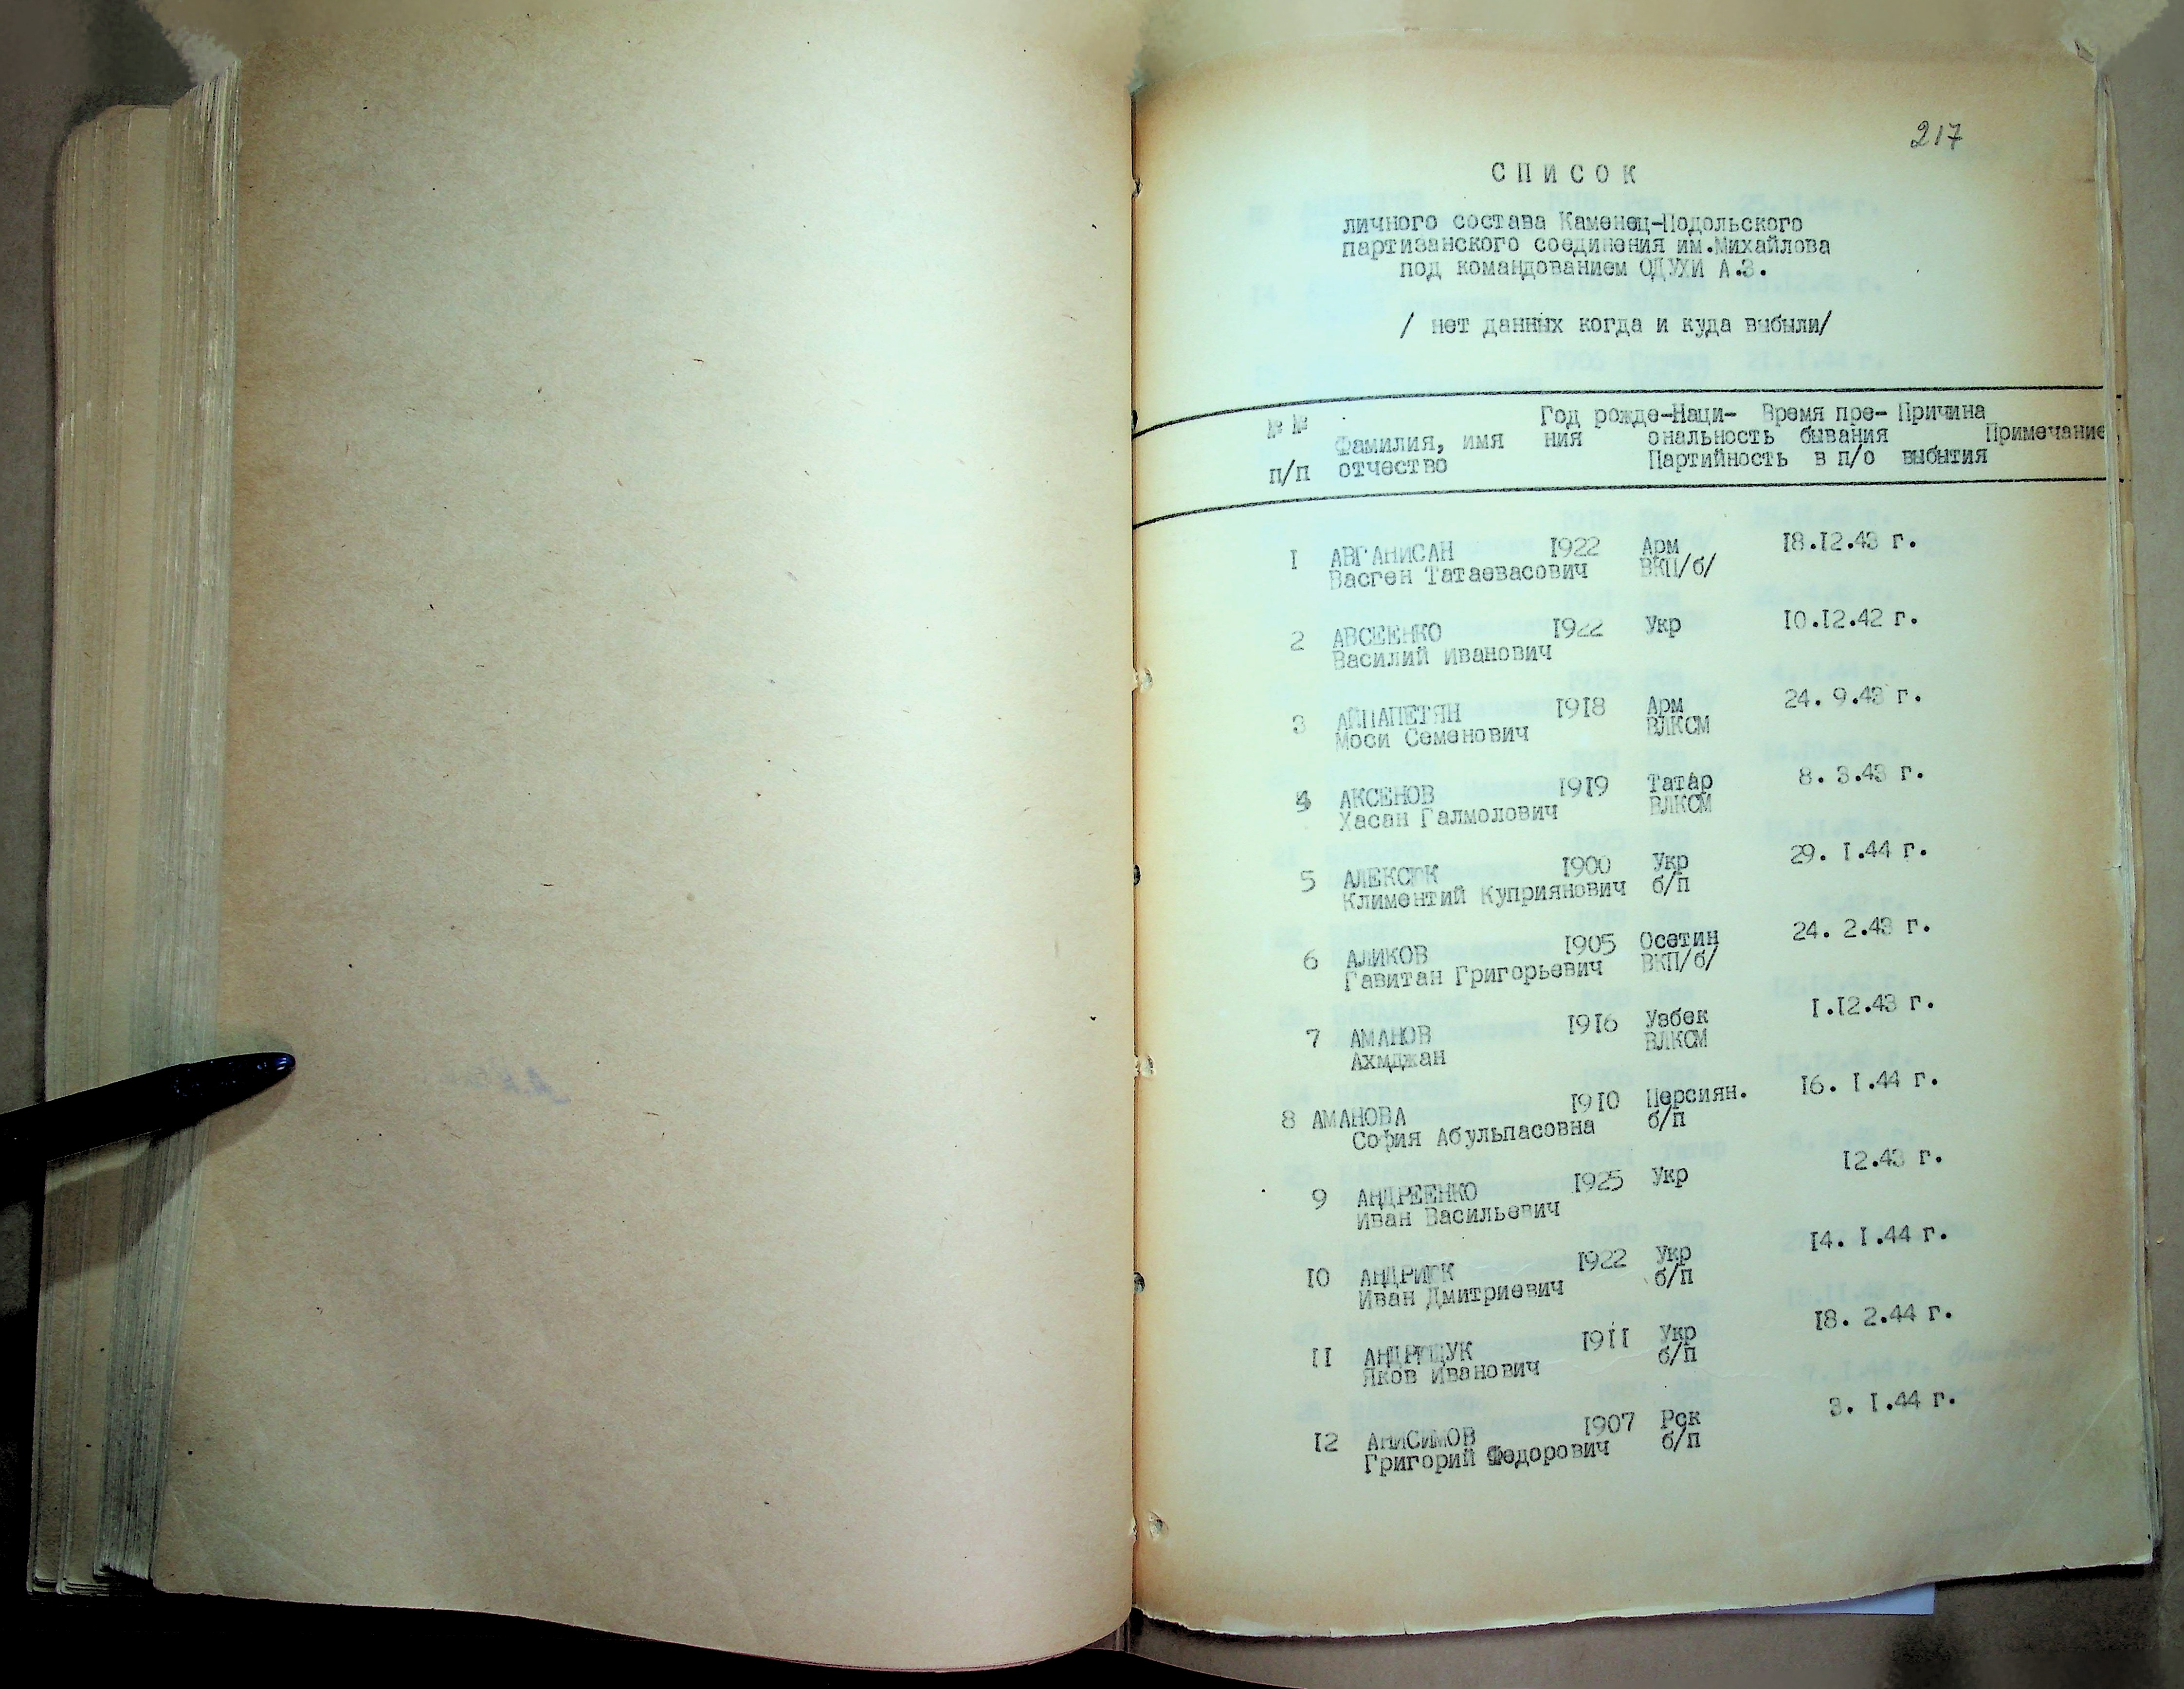 217
СПИСОК
личного состава Каменец-Подольского
партизанского соединения им.Михайлова
под командованием ОДУХИ А.З.
/ нет данных когда и куда выбыли/
№ № Год рожде-Наци- Время пре- Причина
Фамилия, имя ния ональность бывания Примечание
п/п отчество Партийность в п/о выбытия
1 АВГАНИСАН 1922 Арм 18.12.43 г.
Васген Татаевасович ВКП/б/
2 АВСЕЕНКО 1922 Укр 10.12.42 г.
Василий Иванович
3 АЙПАПЕТЯН 1918 Арм 24. 9.43 г.
Моси Семенович ВЛКСМ
4 АКСЕНОВ 1919 Татар 8. 3.43 г.
Хасан Галмолович ВЛКСМ
5 АЛЕКСЮК 1900 Укр 29. 1.44 г.
Климентий Куприянович б/п
6 АЛИКОВ 1905 Осетин 24. 2.43 г.
Гавитан Григорьевич ВКП/б/
7 АМАНОВ 1916 Узбек 1.12.43 г.
Ахмджан ВЛКСМ
8 АМАНОВА 1910 Персиян. 16. 1.44 г.
София Абульпасовна б/п
9 АНДРЕЕНКО 1925 Укр 12.43 г.
Иван Васильевич
10 АНДРИЮК 1922 Укр 14. 1.44 г.
Иван Дмитриевич б/п
11 АНДРИЩУК 1911 Укр 18. 2.44 г.
Яков Иванович б/п
12 АНИСИМОВ 1907 Рск 3. 1.44 г.
Григорий Федорович б/п